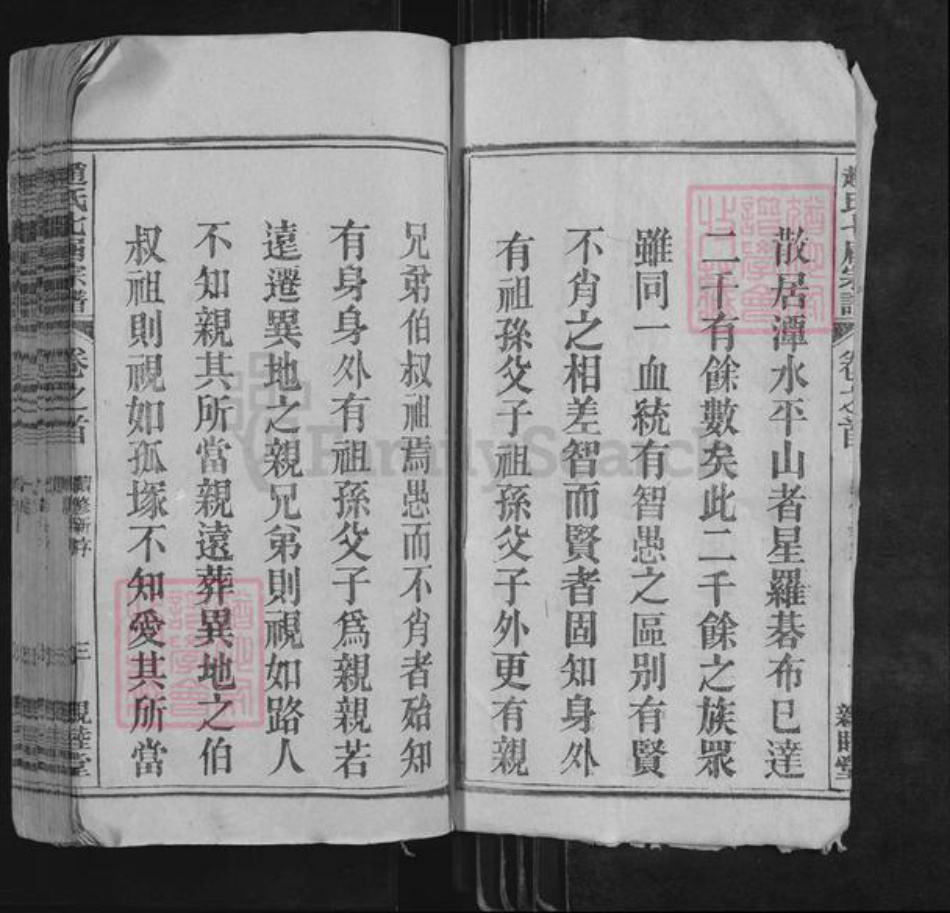 散居潭水平山者星羅碁布已達
二千有餘數矣此二千餘之族眾
雖同一血統有智愚之區别有賢
不肖之相差智而賢者固知身外
有祖孫父子祖孫父子外更有親
兄弟伯叔祖焉愚而不肖者殆知
有身身外有祖孫父子為親親若
遠遷異地之親兄弟則視如路人
不知親其所當親遠葬異地之伯
叔祖則視如孤塚不知愛其所當
趙氏七屆宗譜
卷之首
續修新序
三
親睦堂
FamilySearch